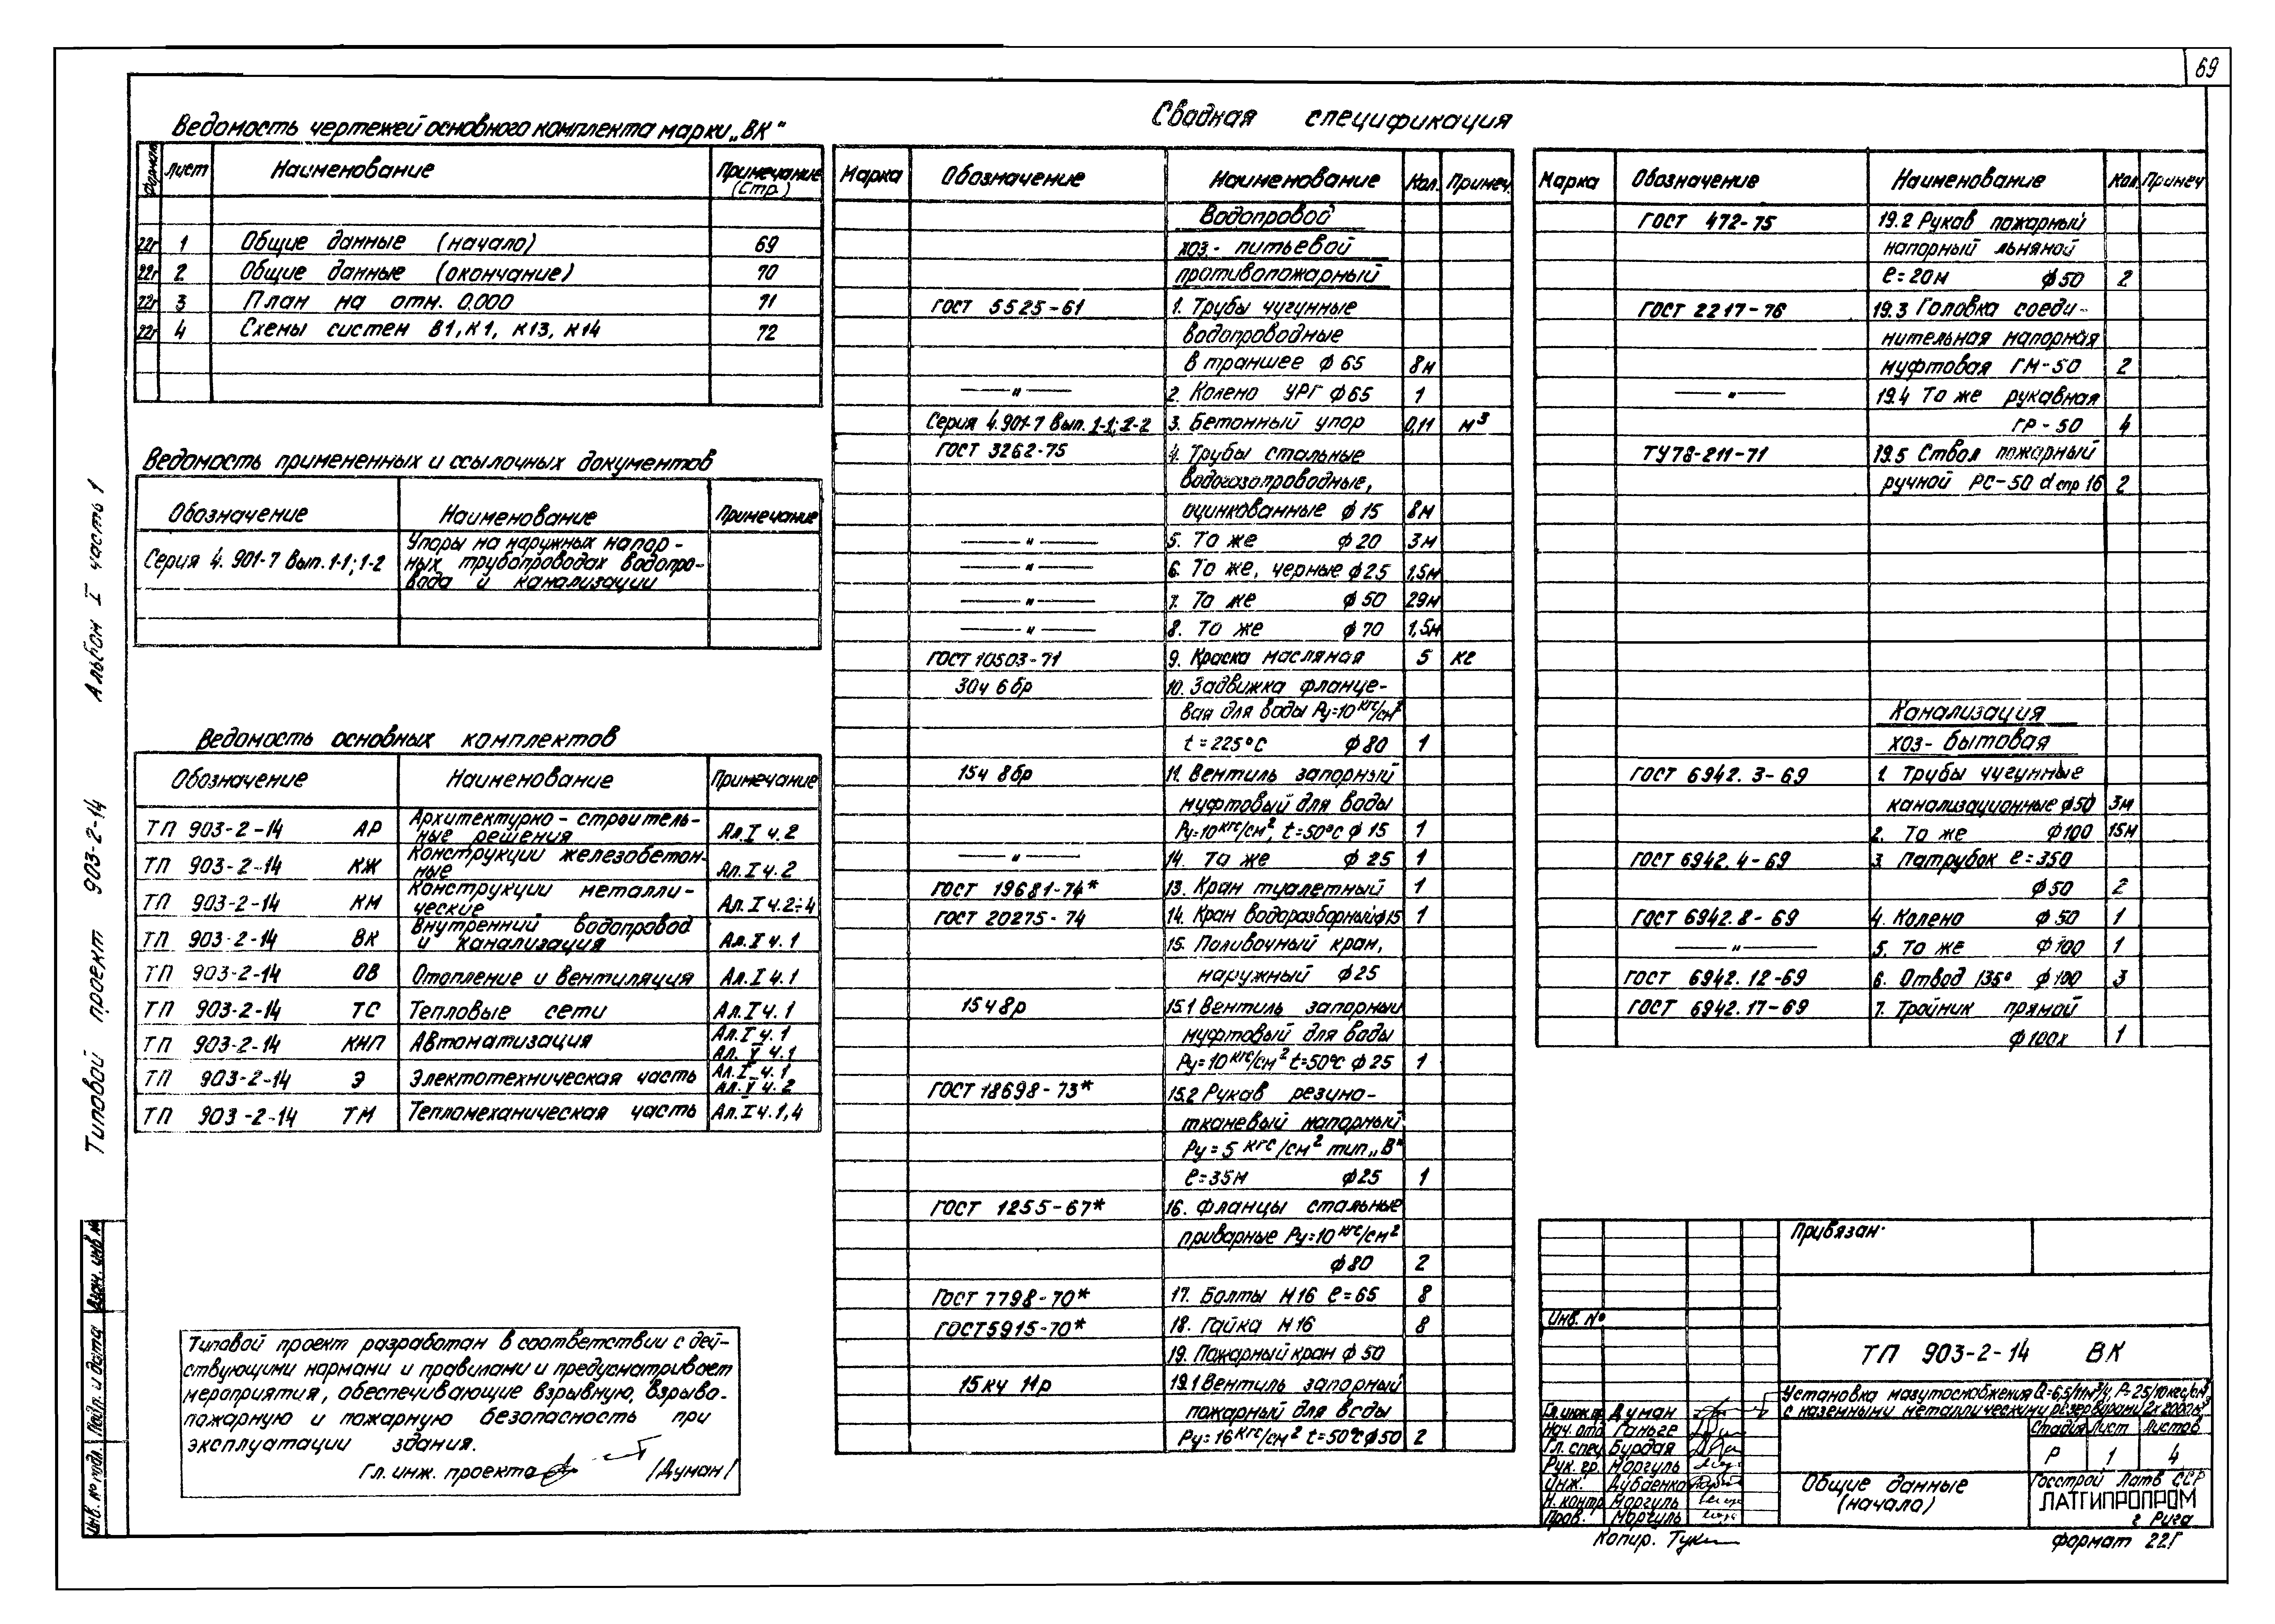 69
Ведомость чертежей основного комплекта марки „ВК“
Формат Лист Наименование Примечание (Стр.)
22г 1 Общие данные (начало) 69
22г 2 Общие данные (окончание) 70
22г 3 План на отм. 0.000 71
22г 4 Схемы систем В1, К1, К13, К14 72
Ведомость примененных и ссылочных документов
Обозначение Наименование Примечание
Серия 4.901-7 Вып. 1-1; 1-2 Упоры на наружных напор-
ных трубопроводах водопро-
вода и канализации
Ведомость основных комплектов
Обозначение Наименование Примечание
ТП 903-2-14 АР Архитектурно-строитель-
ные решения Ал. I ч. 2
ТП 903-2-14 КЖ Конструкции железобетон-
ные Ал. I ч. 2
ТП 903-2-14 КМ Конструкции металли-
ческие Ал. I ч. 2÷4
ТП 903-2-14 ВК Внутренний водопровод
и канализация Ал. I ч. 1
ТП 903-2-14 ОВ Отопление и вентиляция Ал. I ч. 1
ТП 903-2-14 ТС Тепловые сети Ал. I ч. 1
ТП 903-2-14 КИП Автоматизация Ал. I ч. 1
Ал. V ч. 1
ТП 903-2-14 Э Электотехническая часть Ал. I ч. 1
Ал. V ч. 2
ТП 903-2-14 ТМ Тепломеханическая часть Ал. I ч. 1, 4
Типовой проект разработан в соответствии с дей-
ствующими нормами и правилами и предусматривает
мероприятия, обеспечивающие взрывную, взрыво-
пожарную и пожарную безопасность при
эксплуатации здания.
Гл. инж. проекта /Думан/
Сводная спецификация
Марка Обозначение Наименование Кол. Примеч.
Водопровод
хоз-питьевой
противопожарный
ГОСТ 5525-61 1. Трубы чугунные
водопроводные
в траншее ф 65 8м
—„— 2. Колено УРГ ф 65 1
Серия 4.901-7 Вып. 1-1; 1-2 3. Бетонный упор 0,11 м³
ГОСТ 3262-75 4. Трубы стальные
водогазопроводные,
оцинкованные ф 15 8м
—„— 5. То же ф 20 3м
—„— 6. То же, черные ф 25 1,5м
—„— 7. То же ф 50 29м
—„— 8. То же ф 70 1,5м
ГОСТ 10503-71 9. Краска масляная 5 кг
30ч 6бр 10. Задвижка фланце-
вая для воды Ру=10 кгс/см²
t = 225°С ф 80 1
15ч 8бр 11. Вентиль запорный
муфтовый для воды
Ру=10 кгс/см², t=50°С ф 15 1
—„— 14. То же ф 25 1
ГОСТ 19681-74* 13. Кран туалетный 1
ГОСТ 20275-74 14. Кран водоразборный ф15 1
15. Поливочный кран,
наружный ф 25
15ч 8р 15.1 Вентиль запорный
муфтовый для воды
Ру=10 кгс/см² t=50°С ф 25 1
ГОСТ 18698-73* 15.2 Рукав резино-
тканевый напорный
Ру = 5 кгс/см² тип „В“
ℓ=35м ф25 1
ГОСТ 1255-67* 16. Фланцы стальные
приварные Ру=10 кгс/см²
ф 80 2
ГОСТ 7798-70* 17. Болты М16 ℓ=65 8
ГОСТ 5915-70* 18. Гайка М16 8
19. Пожарный кран ф 50
15кч 11р 19.1 Вентиль запорный
пожарный для воды
Ру=16 кгс/см² t=50°С ф50 2
Марка Обозначение Наименование Кол. Примеч
ГОСТ 472-75 19.2 Рукав пожарный
напорный льняной
ℓ=20м ф50 2
ГОСТ 2217-76 19.3 Головка соеди-
нительная напорная
муфтовая ГМ-50 2
—„— 19.4 То же рукавная
ГР-50 4
ТУ78-211-71 19.5 Ствол пожарный
ручной РС-50 d спр 16 2
Канализация
хоз-бытовая
ГОСТ 6942.3-69 1. Трубы чугунные
канализационные ф50 3м
2. То же ф100 15м
ГОСТ 6942.4-69 3. Патрубок ℓ=350
ф50 2
ГОСТ 6942.8-69 4. Колено ф 50 1
—„— 5. То же ф100 1
ГОСТ 6942.12-69 6. Отвод 135° ф 100 3
ГОСТ 6942.17-69 7. Тройник прямой
ф100х 1
Привязан:
Инв. №
ТП 903-2-14 ВК
Установка мазутоснабжения Q=6,5/11м³/ч, Р=25/10кгс/см²
с наземными металлическими резервуарами 2х2000м³
Гл.инж.пр Думан
Нач. отд Ганьге
Гл. спец Бурдая
Рук. гр. Моргуль
Инж. Дубаенко
Н. контр Моргуль
Пров. Моргуль
Стадия Лист Листов
Р 1 4
Общие данные
(начало)
Госстрой Латв ССР
ЛАТГИПРОПРОМ
г Рига
Копир. Туки
формат 22Г
Типовой проект 903-2-14 Альбом I часть 1
Инв. № подл. Подп. и дата Взам. инв. №